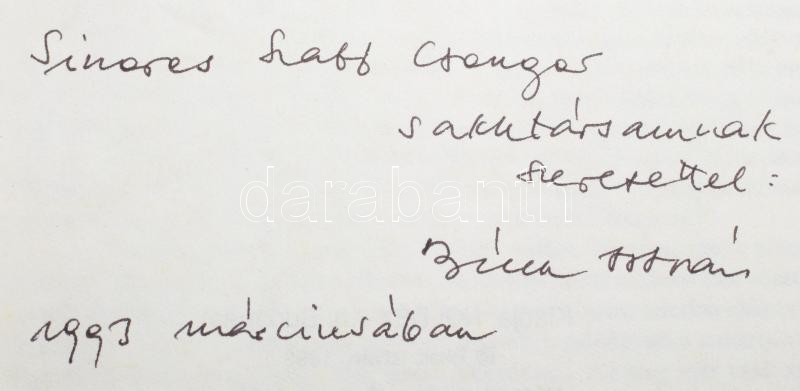 Sinoros Szabó Csongor
sakktársamnak
szeretettel:
Bilek István
1993 márciusában
darabanth